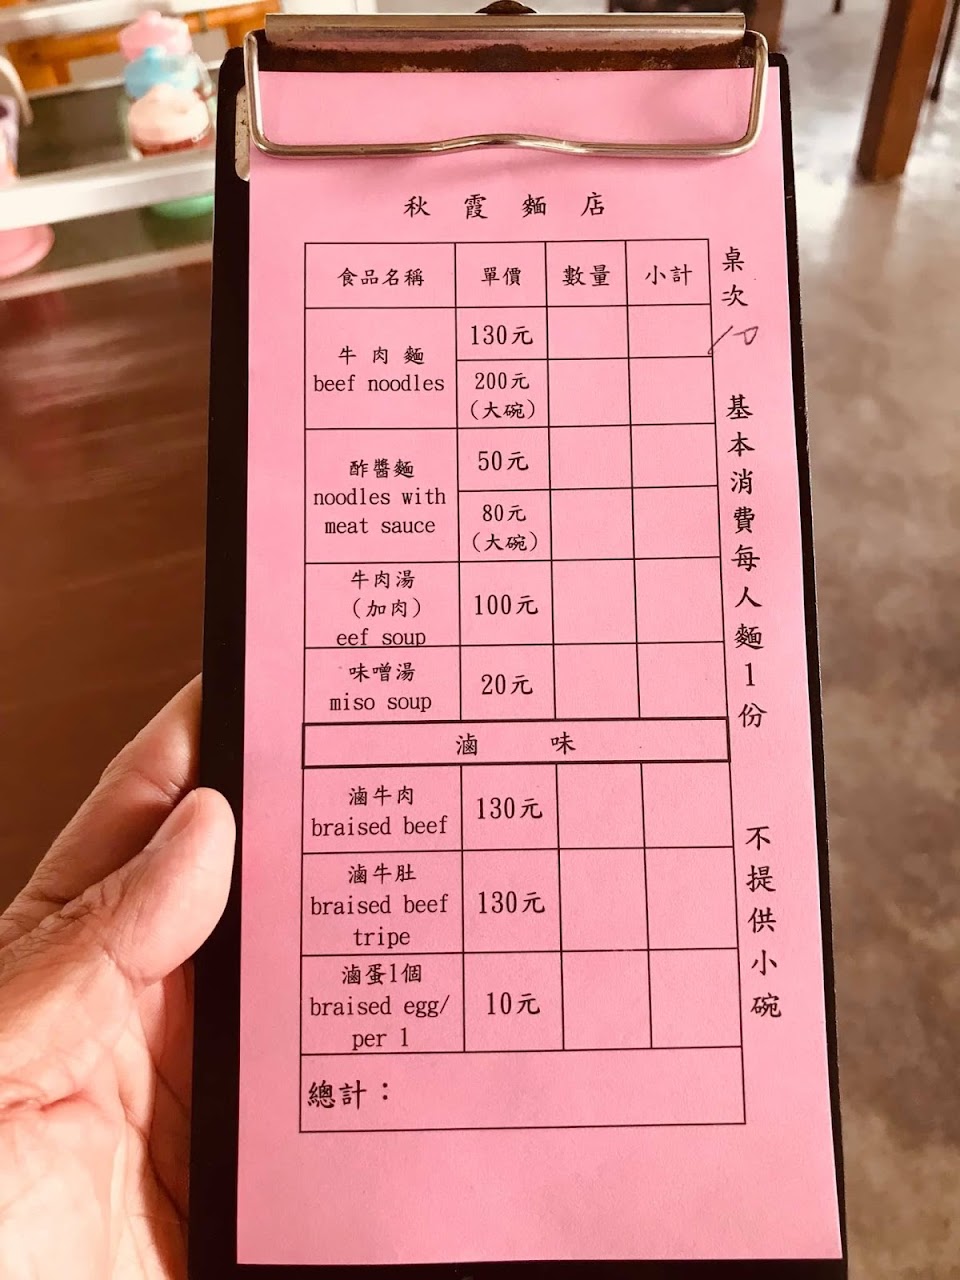 秋霞麵店
食品名稱 單價 數量 小計
牛肉麵
beef noodles
130元
200元
（大碗）
酢醬麵
noodles with
meat sauce
50元
80元
（大碗）
牛肉湯
（加肉）
eef soup
100元
味噌湯
miso soup
20元
滷味
滷牛肉
braised beef
130元
滷牛肚
braised beef
tripe
130元
滷蛋1個
braised egg/
per 1
10元
總計：
桌次
10
基本消費每人麵1份
不提供小碗